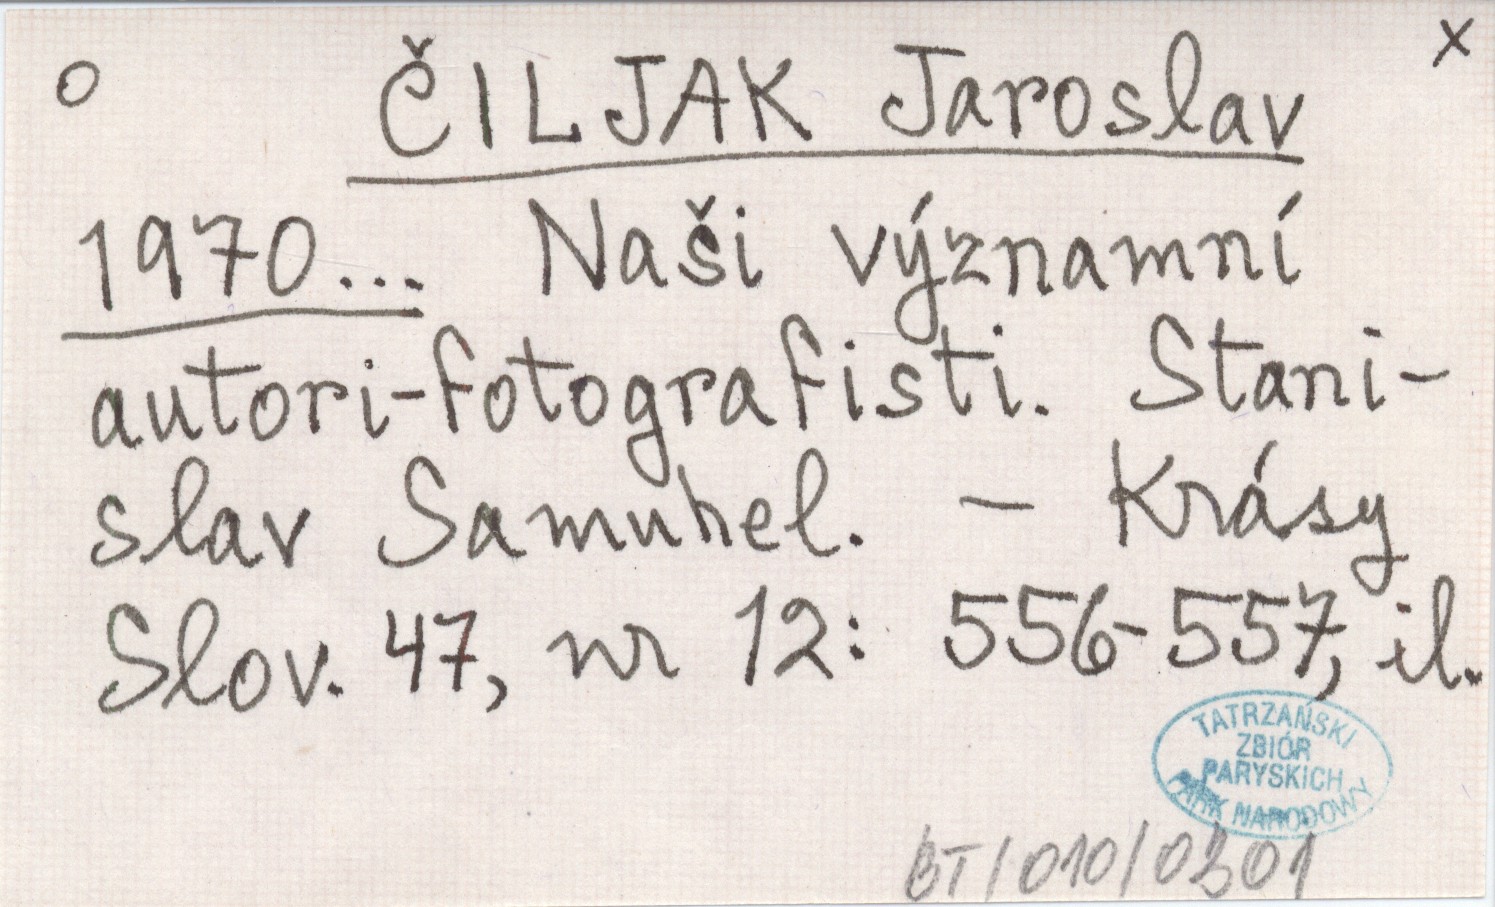 o ČILJAK Jaroslav x
1970... Naši významní
autori-fotografisti. Stani-
slav Samuhel. - Krásy
Slov. 47, nr 12: 556-557, il.
TATRZAŃSKI
ZBIÓR
PARYSKICH
PARK NARODOWY
BT/010/0301